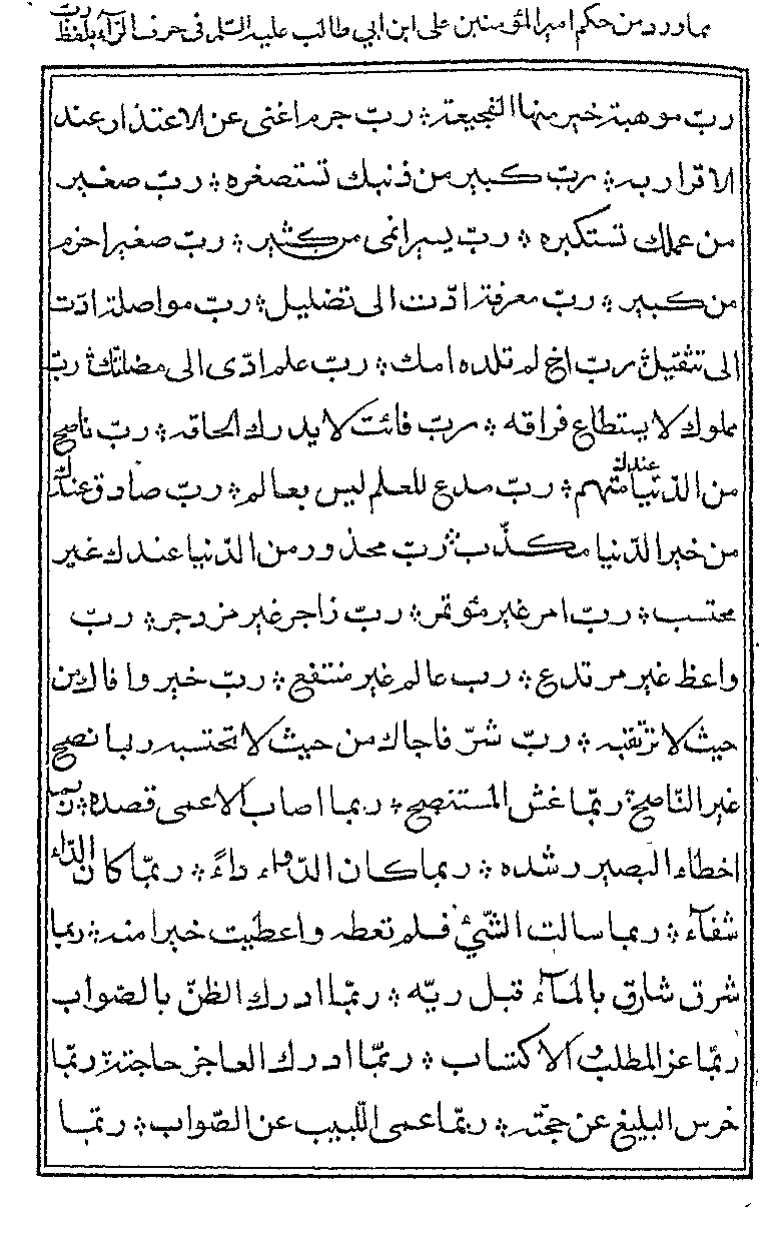 مما ورد من حكم امير المؤمنين على ابن ابي طالب عليه السلم فى حرف الرّآء بلفظ ربّ
ربّ موهبة خير منها الفجيعة ؞ ربّ جرم اغنى عن الاعتذار عند
الاقرار به ؞ ربّ كبير من ذنبك تستصغره ؞ ربّ صغير
من عملك تستكبره ؞ ربّ يسير انمى من كثير ؞ ربّ صغير احزم
من كبير ؞ ربّ معرفة ادّت الى تضليل ؞ ربّ مواصلة ادّت
الى تثقيل ؞ ربّ اخ لم تلده امك ؞ ربّ علم ادّى الى مضلتك ؞ ربّ
مملوك لا يستطاع فراقه ؞ ربّ فائت لا يدرك لحاقه ؞ ربّ ناصح
من الدّنيا عندك متهم ؞ ربّ مدع للعلم ليس بعالم ؞ ربّ صادق عندك
من خير الدّنيا مكذّب ؞ ربّ محذور من الدّنيا عندك غير
محتسب ؞ ربّ امر غير مئوتمر ؞ ربّ زاجر غير مزدجر ؞ ربّ
واعظ غير مرتدع ؞ رب عالم غير منتفع ؞ ربّ خير وافاك من
حيث لا ترتقبه ؞ ربّ شرّ فاجاك من حيث لا تحتسبه ربما نصح
غير النّاصح ؞ ربمّا غش المستنصح ؞ ربما اصاب الاعمى قصده ؞ ربما
اخطاء البصير رشده ؞ ربما كان الدّواء داءً ؞ ربمّا كان الدّاء
شفآء ؞ ربما سالت الشّئ فلم تعطه واعطيت خيرا منه ؞ ربما
شرق شارق بالمآء قبل ريّه ؞ ربمّا ادرك الظنّ بالصّواب
ربمّا عز المطلب والاكتساب ؞ ربمّا ادرك العاجز حاجته ؞ ربمّا
خرس البليغ عن حجّته ؞ ربمّا عمى اللّبيب عن الصّواب ؞ ربمّا